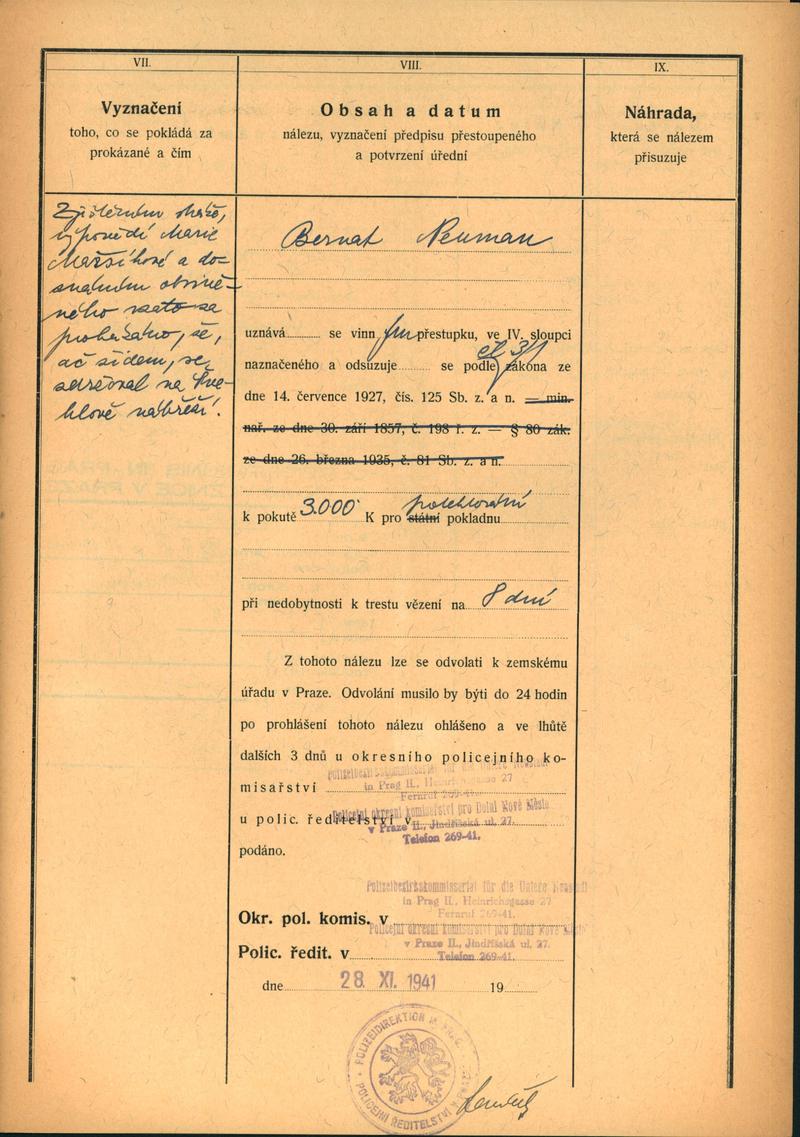 VII.
Vyznačení
toho, co se pokládá za
prokázané a čím
Zjištěním stráže,
výpovědí Marie
Maršíkové a do-
znáním obvině-
ného vzato za
prokázáno, že,
ač židem, se
zdržoval na
nábřeží.
VIII.
Obsah a datum
nálezu, vyznačení předpisu přestoupeného
a potvrzení úřední
Bernat Neuman
uznává se vinným přestupku, ve IV. sloupci
čl. 3/1
naznačeného a odsuzuje se podle zákona ze
dne 14. července 1927, čís. 125 Sb. z. a n. — min.
nař. ze dne 30. září 1857, č. 198 ř. z. — § 80 zák.
ze dne 26. března 1935, č. 81 Sb. z. a n.
k pokutě 3.000 K pro státní pokladnu
při nedobytnosti k trestu vězení na 8 dní
Z tohoto nálezu lze se odvolati k zemskému
úřadu v Praze. Odvolání musilo by býti do 24 hodin
po prohlášení tohoto nálezu ohlášeno a ve lhůtě
dalších 3 dnů u okresního policejního ko-
misařství
Polizeibezirkskommissariat für die Untere Neustadt
in Prag II., Heinrichsgasse 27
Fernruf 269-41.
u polic. ředitelství v
Policejní okresní komisařství pro Dolní Nové Město
v Praze II., Jindřišská ul. 27.
Telefon 269-41.
podáno.
Polizeibezirkskommissariat für die Untere Neustadt
in Prag II., Heinrichsgasse 27
Fernruf 269-41.
Okr. pol. komis. v
Policejní okresní komisařství pro Dolní Nové Město
v Praze II., Jindřišská ul. 27.
Telefon 269-41.
Polic. ředit. v
dne 28. XI. 1941 19
POLIZEIDIREKTION IN PRAG
POLICEJNÍ ŘEDITELSTVÍ V PRAZE
IX.
Náhrada,
která se nálezem
přisuzuje